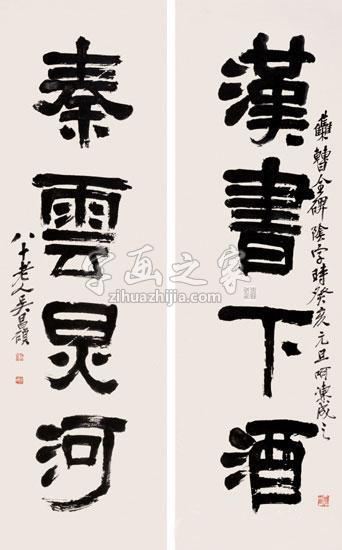 漢書下酒
雧曹全碑陰字時癸亥元旦呵凍成之
秦雲炅河
八十老人吳昌碩
字画之家
zihuazhijia.com